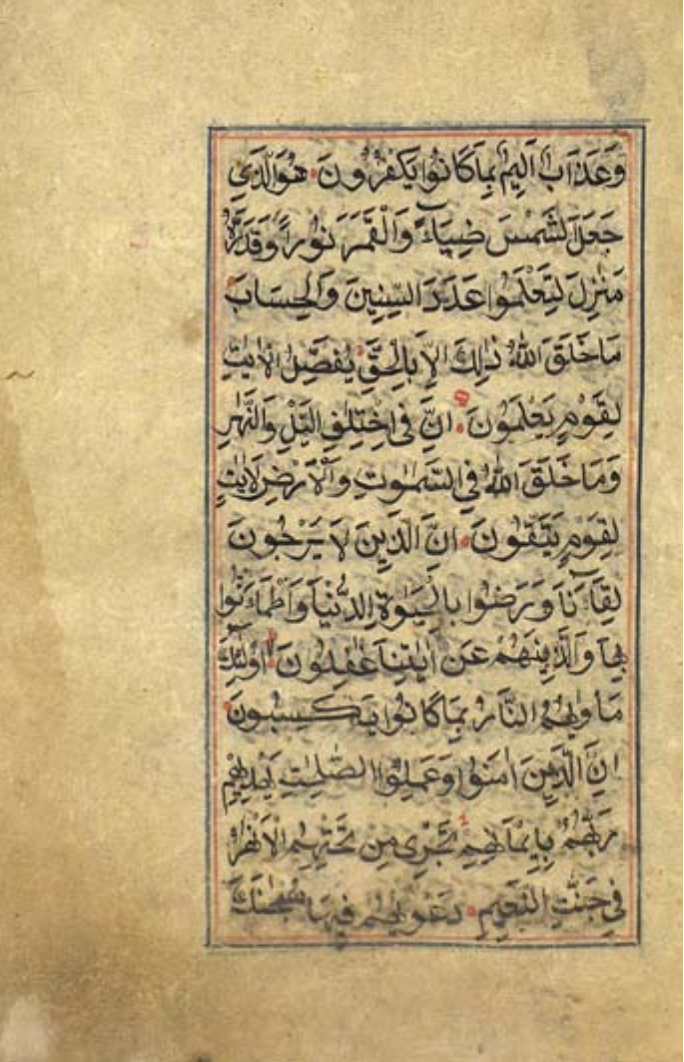 وَعَذَابٌ اَلِيْمٌ بِمَا كَانُوْا يَكْفُرُوْنَ هُوَ الَّذِي
جَعَلَ الشَّمْسَ ضِيَاءً وَالْقَمَرَ نُوْرًا وَقَدَّرَهُ
مَنَزِلَ لِتَعْلَمُوا عَدَدَ السِّنِيْنَ وَالْحِسَابَ
مَا خَلَقَ اللهُ ذٰلِكَ اِلاَّ بِالْحَقِّ يُفَصِّلُ الْاٰيٰتِ
لِقَوْمٍ يَعْلَمُوْنَ اِنَّ فِي اخْتِلٰفِ الَّيْلِ وَالنَّهٰرِ
وَمَا خَلَقَ اللهُ فِي السَّمٰوٰتِ وَالْاَرْضِ لَاٰيٰتٍ
لِقَوْمٍ يَتَّقُوْنَ اِنَّ الَّذِيْنَ لَا يَرْجُوْنَ
لِقَآءَنَا وَرَضُوْا بِالْحَيٰوةِ الدُّنْيَا وَاطْمَاَنُّوْا
بِهَا وَالَّذِيْنَ هُمْ عَنْ اٰيٰتِنَا غٰفِلُوْنَ اُولٰئِكَ
مَاْوٰيهُمُ النَّارُ بِمَا كَانُوْا يَكْسِبُوْنَ
اِنَّ الَّذِيْنَ اٰمَنُوْا وَعَمِلُوا الصّٰلِحٰتِ يَهْدِيْهِمْ
رَبُّهُمْ بِاِيْمَانِهِمْ تَجْرِيْ مِنْ تَحْتِهِمُ الْاَنْهٰرُ
فِيْ جَنّٰتِ النَّعِيْمِ دَعْوٰيهُمْ فِيْهَا سُبْحٰنَكَ